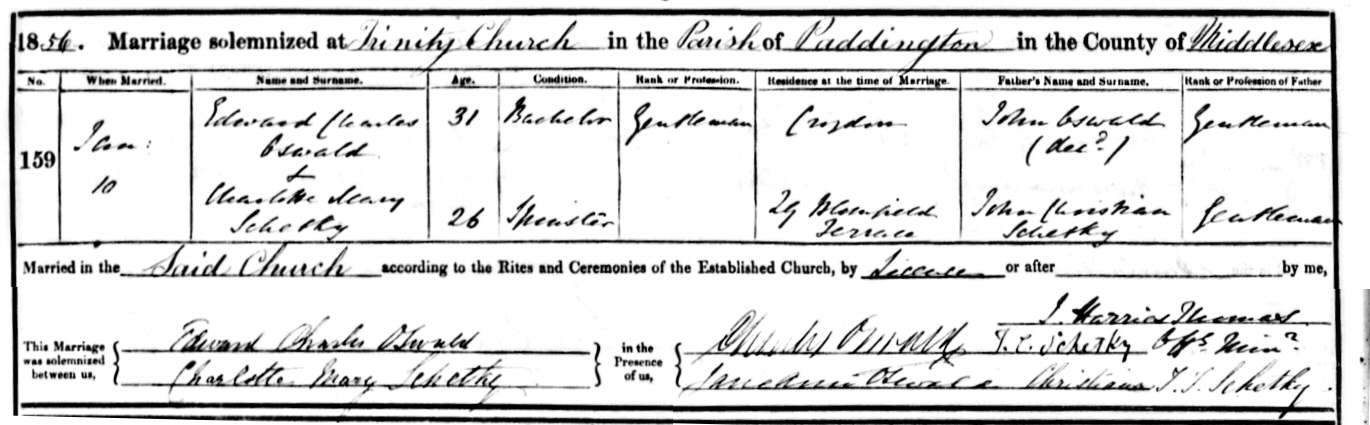 1856. Marriage solemnized at Trinity Church in the Parish of Paddington in the County of Middlesex
No. When Married. Name and Surname. Age. Condition. Rank or Profession. Residence at the time of Marriage. Father's Name and Surname. Rank or Profession of Father
159 Jan: 10
Edward Charles
Oswald
31 Bachelor Gentleman Croydon John Oswald
(decd)
Gentleman
+
Charlotte Mary
Schetky
26 Spinster 29 Blomfield
Terrace
John Christian
Schetky
Gentleman
Married in the Said Church according to the Rites and Ceremonies of the Established Church, by Licence or after by me,
J. Harries Thomas
Offg Minr
This Marriage
was solemnized
between us,
Edward Charles Oswald
Charlotte Mary Schetky
in the
Presence
of us,
Charles Oswald J. C. Schetky
Jane Ann Oswald Christiana J. S. Schetky.